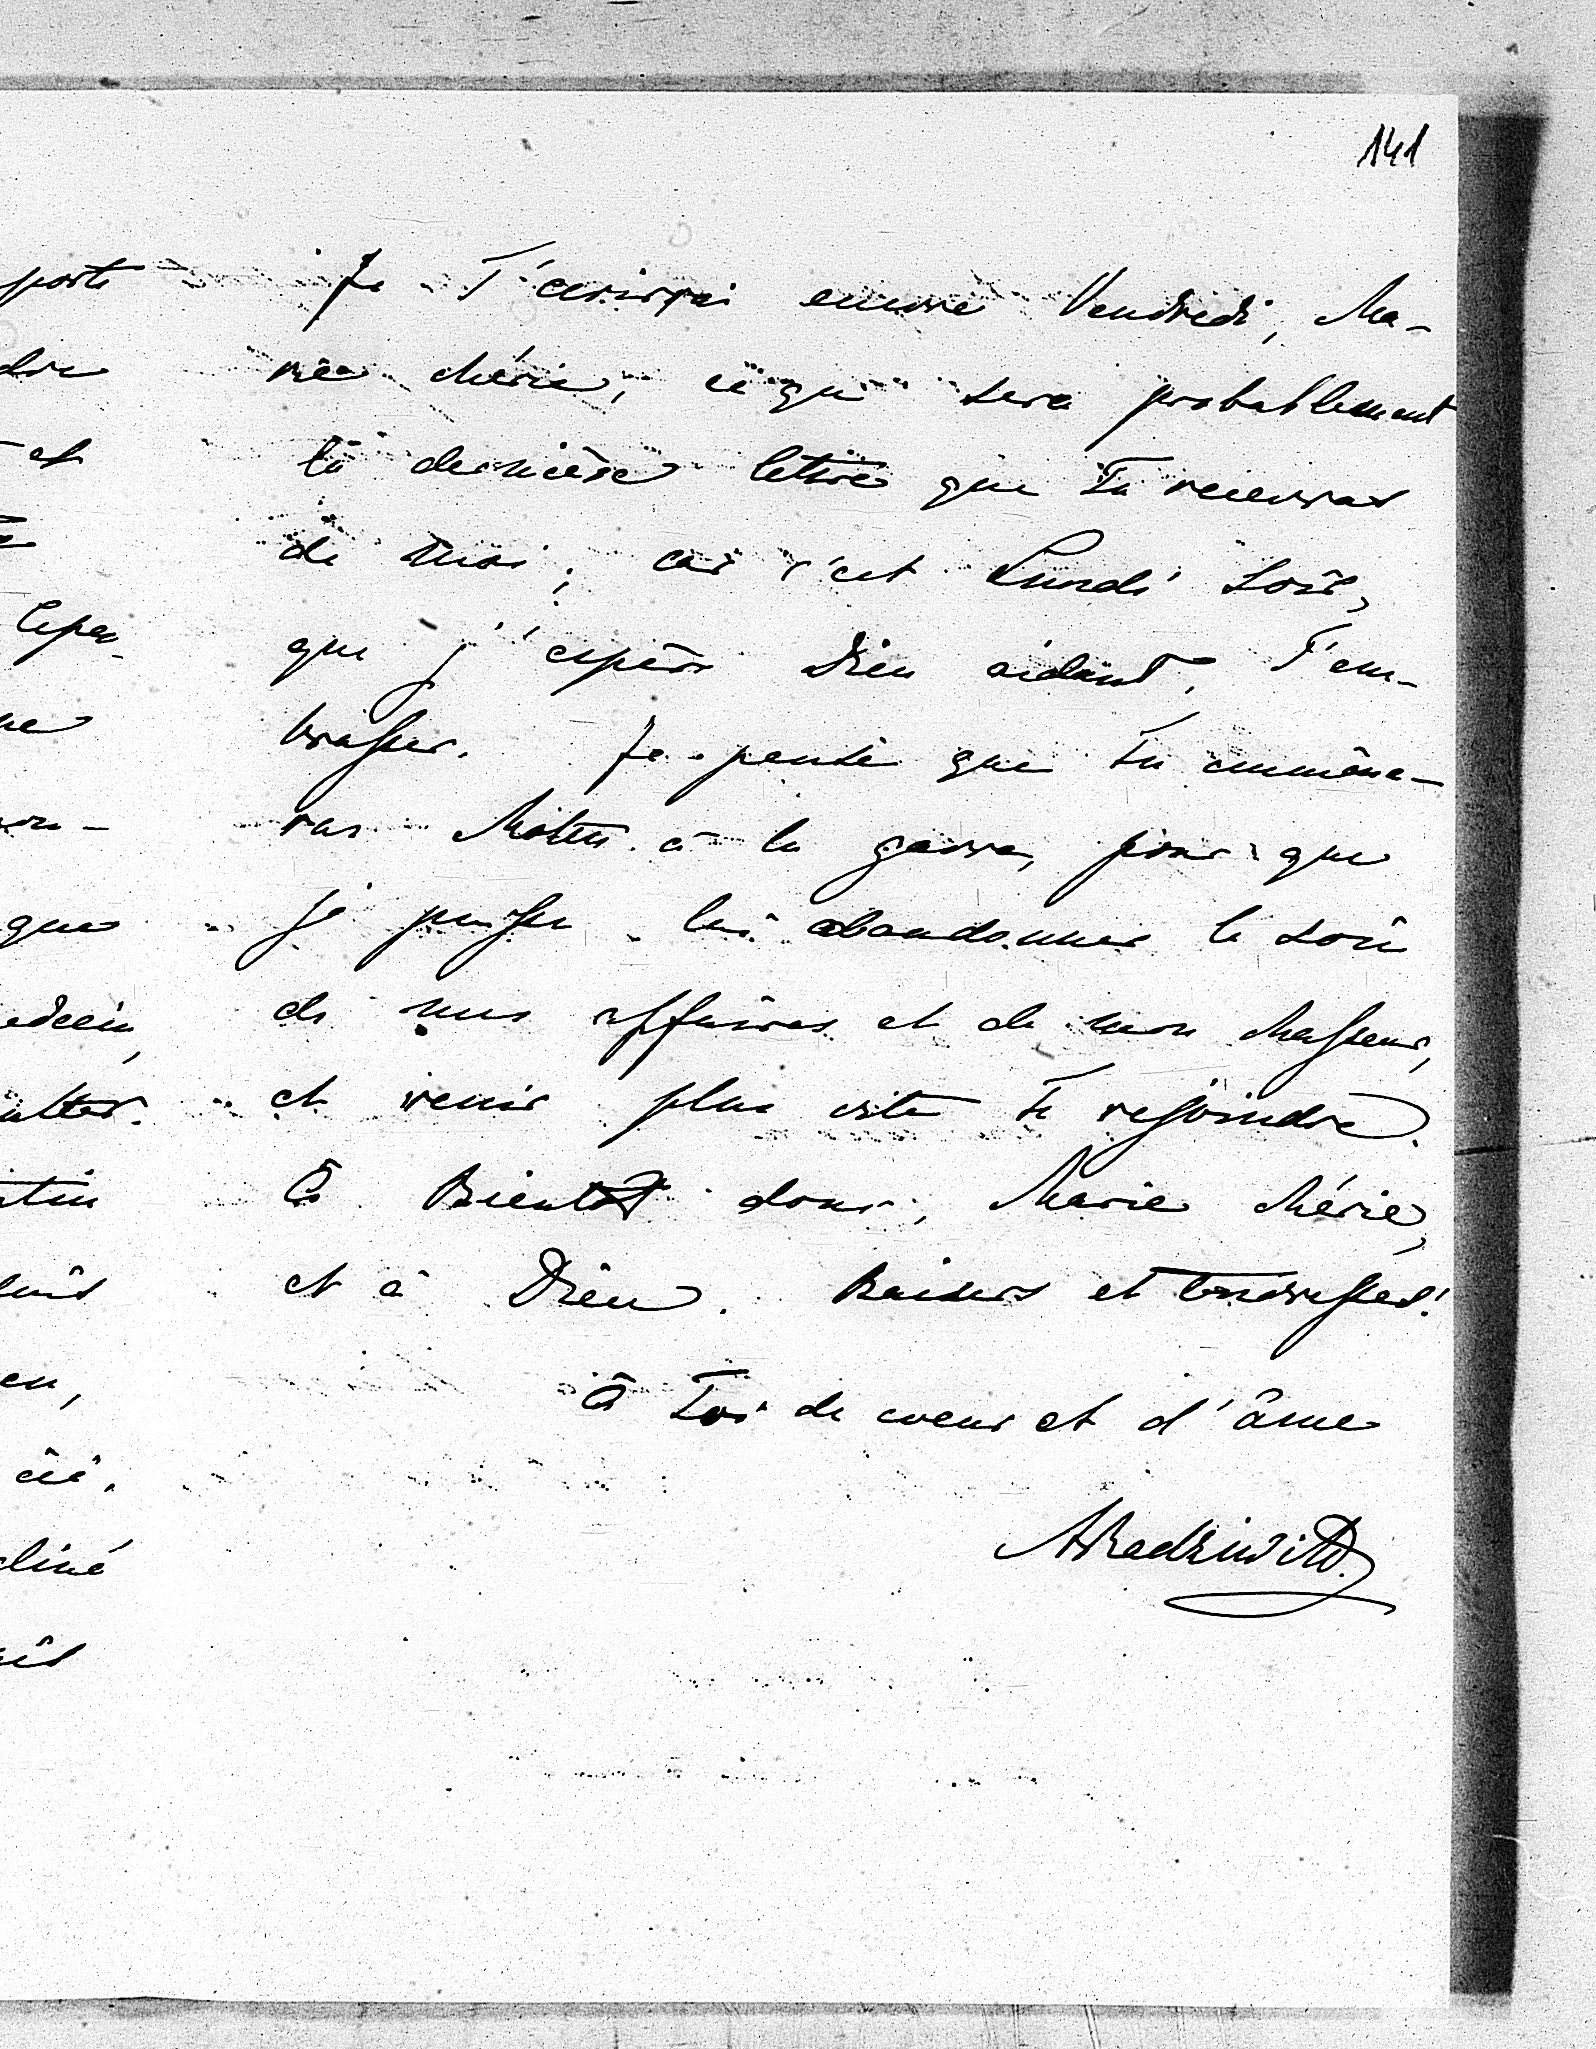 141
Je T'écrirai encore Vendredi, Ma-
rie chérie, ce qui sera probablement
la dernière lettre que Tu recevras
de moi; car c'est Lundi soir,
que j'espère Dieu aidant, T'em-
brasser. Je pense que Tu emmène-
ras à la garre, pour que
je puisse lui abandonner le soin
de mes affaires et de mon chasseur,
et venir plus vite Te rejoindre.
À Bientôt donc, Marie chérie,
et à Dieu. Baisers et tendresses!
À Toi de coeur et d'âme
ARadziwill
porte
et
Cepen-
que
edecin,
ulter.
en,
cliné